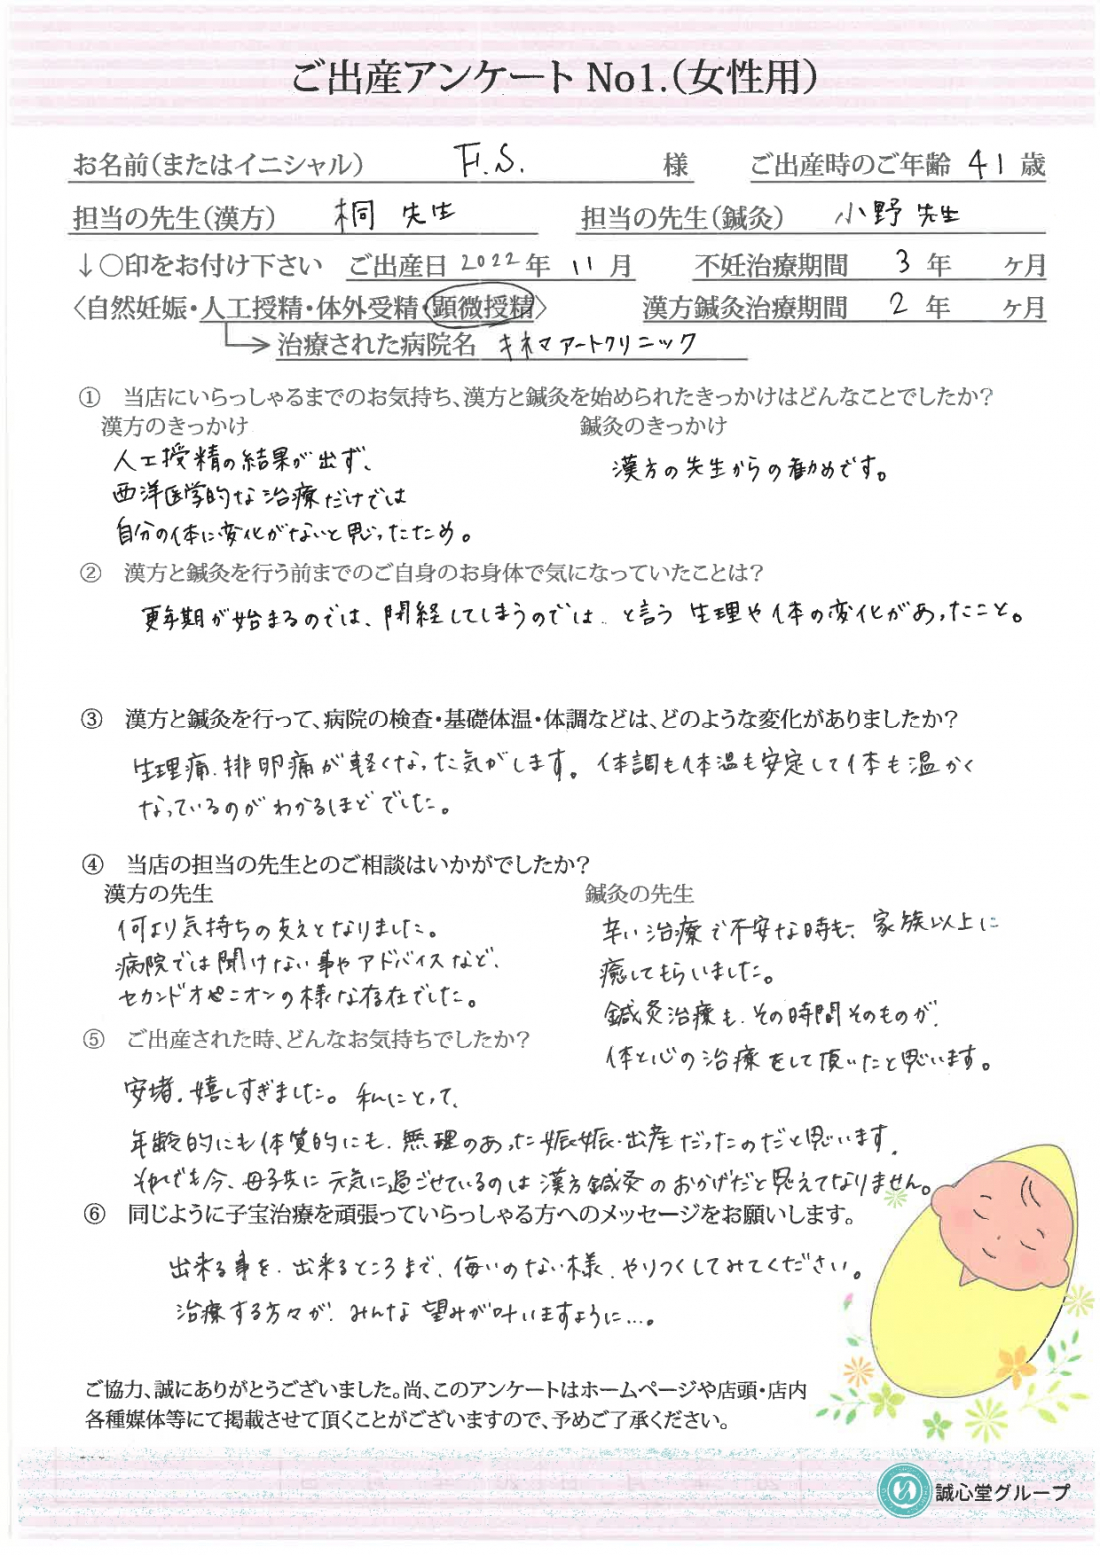 ご出産アンケート No1.(女性用)
お名前(またはイニシャル) F.S. 様 ご出産時のご年齢 41 歳
担当の先生(漢方) 桐 先生 担当の先生(鍼灸) 小野 先生
↓○印をお付け下さい ご出産日 2022 年 11 月 不妊治療期間 3 年 ヶ月
〈自然妊娠・人工授精・体外受精・顕微授精〉 漢方鍼灸治療期間 2 年 ヶ月
治療された病院名 キネマアートクリニック
① 当店にいらっしゃるまでのお気持ち、漢方と鍼灸を始められたきっかけはどんなことでしたか?
漢方のきっかけ
人工授精の結果が出ず、
西洋医学的な治療だけでは
自分の体に変化がないと思ったため。
鍼灸のきっかけ
漢方の先生からの勧めです。
② 漢方と鍼灸を行う前までのご自身のお身体で気になっていたことは?
更年期が始まるのでは、閉経してしまうのでは、と言う 生理や体の変化があったこと。
③ 漢方と鍼灸を行って、病院の検査・基礎体温・体調などは、どのような変化がありましたか?
生理痛、排卵痛が軽くなった気がします。体調も体温も安定して体も温かく
なっているのがわかるほどでした。
④ 当店の担当の先生とのご相談はいかがでしたか?
漢方の先生
何より気持ちの支えとなりました。
病院では聞けない事やアドバイスなど、
セカンドオピニオンの様な存在でした。
鍼灸の先生
辛い治療で不安な時も、家族以上に
癒してもらいました。
鍼灸治療も、その時間そのものが、
体と心の治療をして頂いたと思います。
⑤ ご出産された時、どんなお気持ちでしたか?
安堵、嬉しすぎました。私にとって、
年齢的にも体質的にも、無理のあった妊娠・出産だったのだと思います。
それでも今、母子共に元気に過ごせているのは漢方鍼灸のおかげだと思えてなりません。
⑥ 同じように子宝治療を頑張っていらっしゃる方へのメッセージをお願いします。
出来る事を、出来るところまで、悔いのない様、やりつくしてみてください。
治療する方々が、みんな望みが叶いますように…。
ご協力、誠にありがとうございました。尚、このアンケートはホームページや店頭・店内
各種媒体等にて掲載させて頂くことがございますので、予めご了承ください。
誠心堂グループ